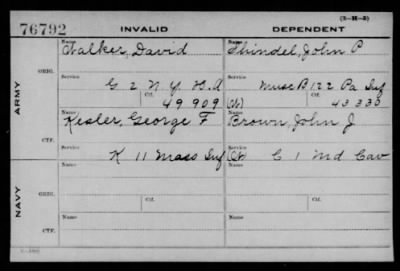 (3-H-3)
76792 INVALID DEPENDENT
Name Walker, David Name Shindel, John P
ORIG.
Service G 2 N Y H.A Service Musc B 122 Pa Inf
ARMY
Ctf. 49909 Ctf. 43330
Name Kesler, George F Name Brown, John J
CTF.
Service K 11 Mass Inf Service C 1 Md Cav
Name Name
ORIG.
NAVY
Service Ctf. Service Ctf.
Name Name
CTF.